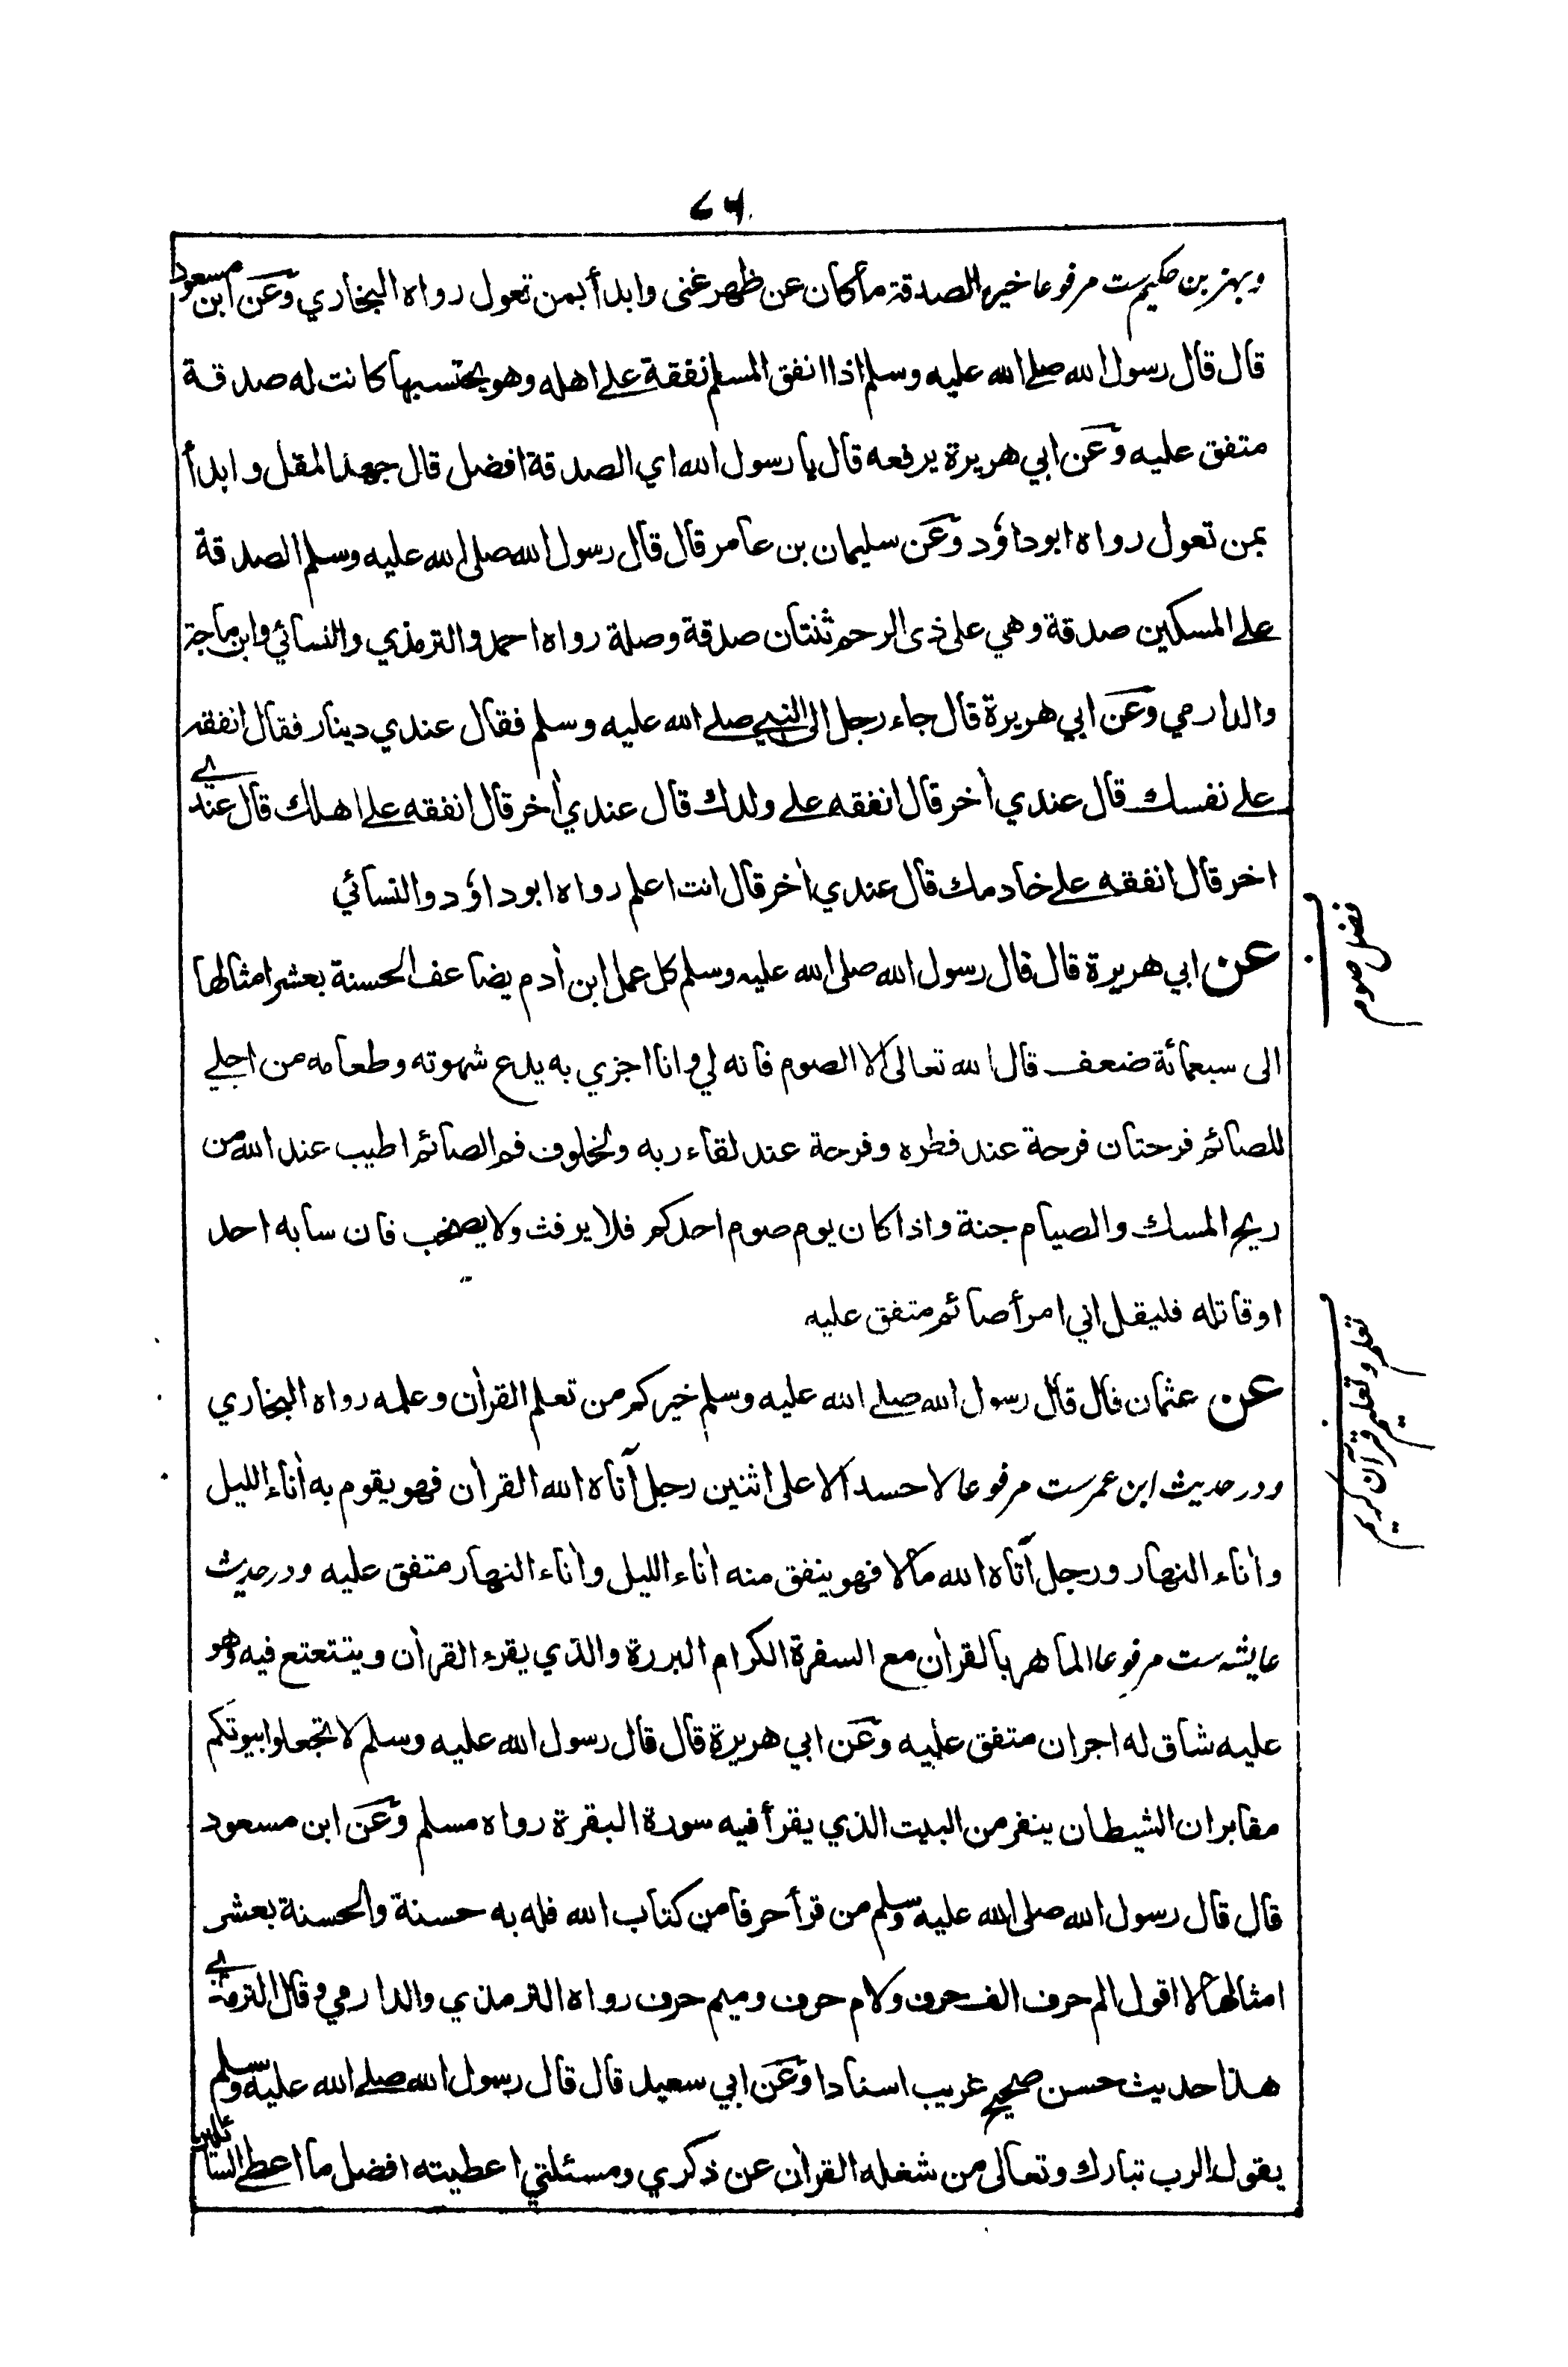 ۶۷
وبهز بن حكيم ست مرفوعا خير الصدقة ما كان عن ظهر غنى وابدأ بمن تعول رواه البخاري وعن ابن مسعود
قال قال رسول الله صلے الله عليه وسلم اذا انفق المسلم نفقة علے اهله وهو يحتسبها كانت له صدقة
متفق عليه وعن ابي هريرة يرفعه قال يا رسول الله اي الصدقة افضل قال جهد المقل وابدأ
بمن تعول رواه ابوداؤد وعن سليمان بن عامر قال قال رسول الله صلى الله عليه وسلم الصدقة
علے المسكين صدقة وهي على ذى الرحم ثنتان صدقة وصلة رواه احمد والترمذي والنسائي وابن ماجة
والدارمي وعن ابي هريرة قال جاء رجل الى النبي صلے الله عليه وسلم فقال عندي دينار فقال انفقه
علے نفسك قال عندي أخر قال انفقه علے ولدك قال عندي أخر قال انفقه علے اهلك قال عندي
اخر قال انفقه علے خادمك قال عندي أخر قال انت اعلم رواه ابوداؤد والنسائي
فضل صوم
عن ابي هريرة قال قال رسول الله صلى الله عليه وسلم كل عمل ابن أدم يضاعف الحسنة بعشر امثالها
الى سبعمائة ضعف قال الله تعالى الا الصوم فانه لي وانا اجزي به يدع شهوته وطعامه من اجلے
للصائم فرحتان فرحة عند فطره وفرحة عند لقاء ربه ولخلوف فم الصائم اطيب عند الله من
ريح المسك والصيام جنة واذا كان يوم صوم احدكم فلا يرفث ولا يصخب فان سابه احد
او قاتله فليقل اني امرأ صائم متفق عليه
تعلم وتعليم قرآن كريم
عن عثمان قال قال رسول الله صلے الله عليه وسلم خيركم من تعلم القرأن وعلمه رواه البخاري
ودر حديث ابن عمر ست مرفوعا لا حسد الا على اثنين رجل آتاه الله القرأن فهو يقوم به أناء الليل
وأناء النهار ورجل آتاه الله مالا فهو ينفق منه أناء الليل وأناء النهار متفق عليه ودر حديث
عايشه ست مرفوعا الماهر بالقرأن مع السفرة الكرام البررة والذي يقرء القرأن ويتتعتع فيه وهو
عليه شاق له اجران متفق عليه وعن ابي هريرة قال قال رسول الله عليه وسلم لا تجعلوا بيوتكم
مقابر ان الشيطان ينفر من البيت الذي يقرأ فيه سورة البقرة رواه مسلم وعن ابن مسعود
قال قال رسول الله صلى الله عليه وسلم من قرأ حرفا من كتاب الله فله به حسنة والحسنة بعشر
امثالها لا اقول الم حرف الف حرف ولام حرف وميم حرف رواه الترمذي والدارمي وقال الترمذي
هذا حديث حسن صحيح غريب اسنادا وعن ابي سعيد قال قال رسول الله صلے الله عليه وسلم
يقول الرب تبارك وتعالى من شغله القرأن عن ذكري ومسئلتي اعطيته افضل ما اعطے السائلين